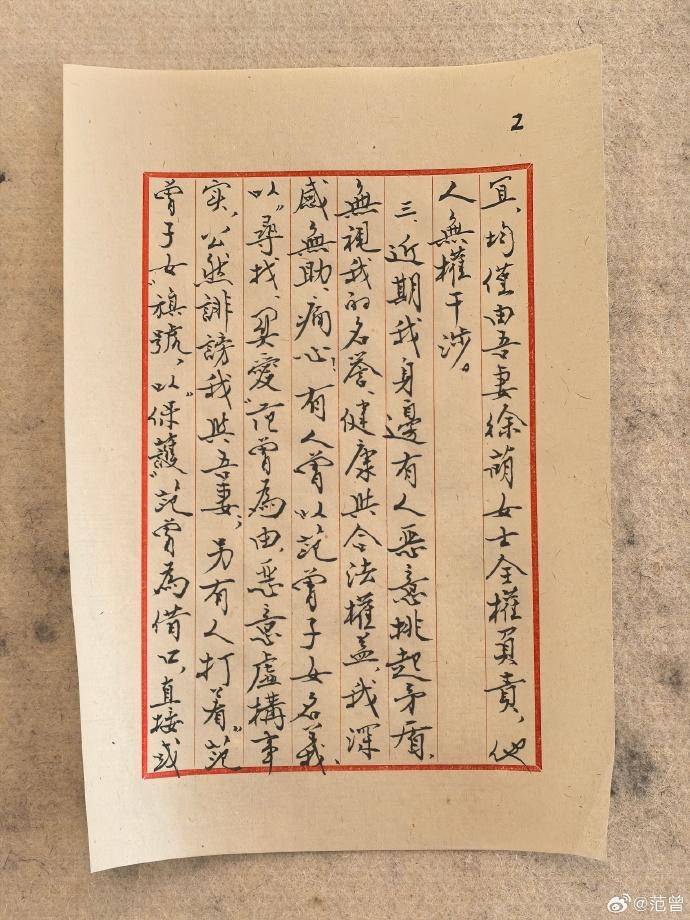 2
宜,均僅由吾妻徐萌女士全權負責,他
人無權干涉。
三、近期我身邊有人惡意挑起矛盾,
無視我的名譽、健康與合法權益,我深
感無助、痛心,有人曾以范曾子女名義、
以“尋找、关愛”范曾為由,惡意虛構事
实,公然誹謗我與吾妻,另有人打着“范
曾子女”旗號,以“保護”范曾為借口,直接或
@范曾